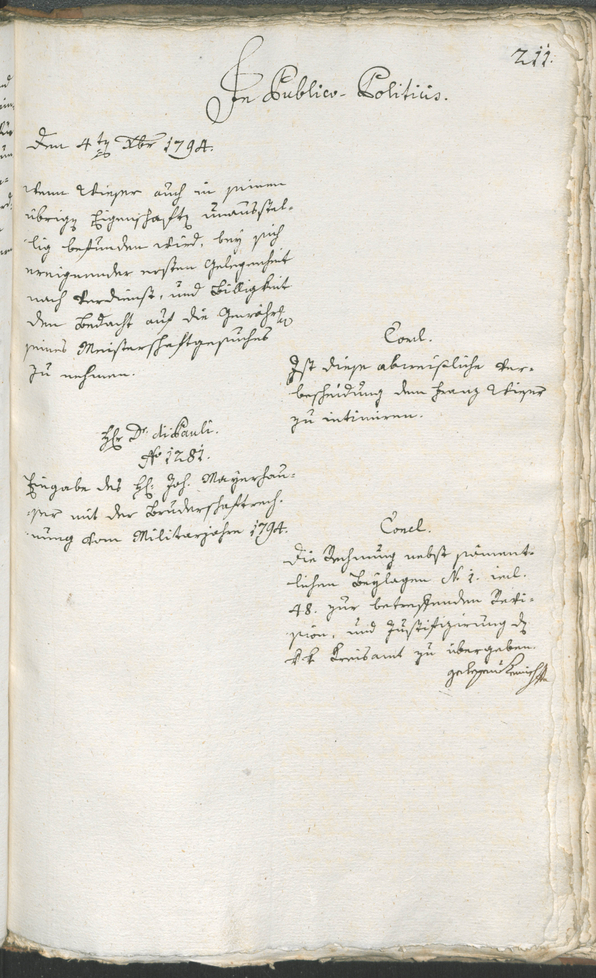 211.
In Publico-Politicis.
Den 4ten Xbr 1794.
wenn Wieser auch in seinen
übrigen Eigenschaften unausstel-
lig befunden wird, bey sich
ereignender ersten Gelegenheit
nach Verdienst, und Billigkeit
den Bedacht auf die Gewährung
seines Meisterschaftgesuches
zu nehmen.
Concl.
Ist diese abweisliche Ver-
bescheidung dem Franz Wieser
zu intimiren.
Hr Dr. di Pauli.
No 1281.
Eingabe des H: Joh. Mayerhau-
ser mit der Bruderschaftrech-
nung vom Militarjahre 1794.
Concl.
Die Rechnung nebst sament-
lichen Beylagen N. 1. incl.
48. zur betreffenden Revi-
sion, und Justifizirung dem
k k Kreisamt zu übergeben.